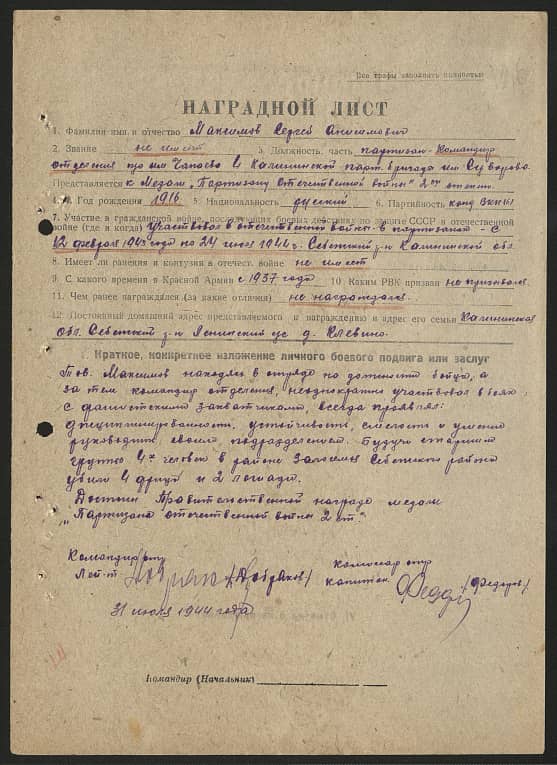 Все графы заполнять полностью
НАГРАДНОЙ ЛИСТ
1. Фамилия имя и отчество Максимов Сергей Анисимович
2. Звание не имеет 3. Должность, часть партизан-командир
отделения отр им Чапаева Калининской парт. бригада им Суворова
Представляется к Медали "Партизану Отечественной войны" 2ой степени.
4. Год рождения 1916 5. Национальность русский 6. Партийность конд ВКП(б)
7. Участие в гражданской войне, последующих боевых действиях по защите СССР и отечественной
войне (где и когда) Участвовал в отечественной войне в партизанах - с
12 февраля 1943 года по 24 июля 1944 г. Себежский р-н Калининской обл.
8. Имеет ли ранения и контузия в отечест. войне не имеет
9. С какого времени в Красной Армии с 1937 года 10. Каким РВК призван не призывался.
11. Чем ранее награждался (за какие отличия) не награждался.
12. Постоянный домашний адрес представляемого к награждению и адрес его семьи Калининская
обл. Себежский р-н Ленинский с/с д. Клевино.
Краткое, конкретное изложение личного боевого подвига или заслуг
Тов. Максимов находясь в отряде по должности бойца, а
затем командир отделения, неоднократно участвовал в боях
с фашистскими захватчиками, всегда проявлял:
дисциплинированность, устойчивость, смелость и умение
руководить своим подразделением. Будучи старшим
группы 4х человек в районе Себежского района
убили 4 фрица и 2 лошади.
Достоин Правительственной награды медали
"Партизана отечественной войны 2 ст."
Командир отр
Лей-т /Добряков/
комиссар отр
капитан /Федоров/
31 июля 1944 года
Командир (Начальник)